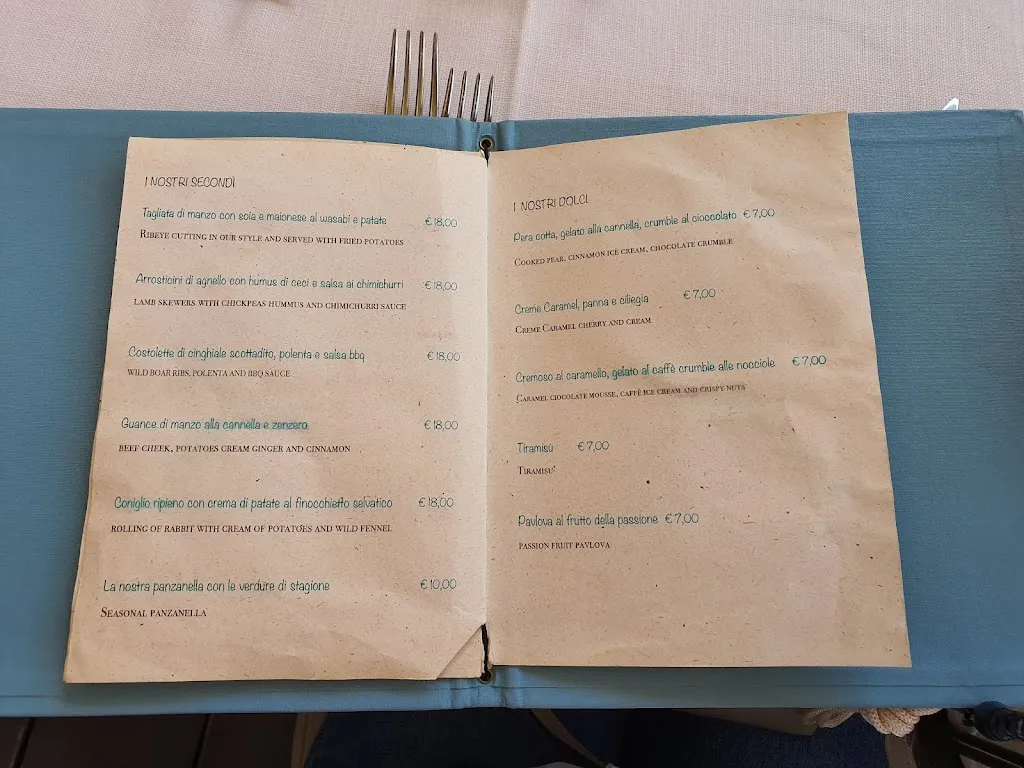 I NOSTRI SECONDI
Tagliata di manzo con soia e maionese al wasabi e patate €18,00
RIBEYE CUTTING IN OUR STYLE AND SERVED WITH FRIED POTATOES
Arrosticini di agnello con humus di ceci e salsa ai chimichurri €18,00
LAMB SKEWERS WITH CHICKPEAS HUMMUS AND CHIMICHURRI SAUCE
Costolette di cinghiale scottadito, polenta e salsa bbq €18,00
WILD BOAR RIBS, POLENTA AND BBQ SAUCE
Guance di manzo alla cannella e zenzero €18,00
BEEF CHEEK, POTATOES CREAM GINGER AND CINNAMON
Coniglio ripieno con crema di patate al finocchietto selvatico €18,00
ROLLING OF RABBIT WITH CREAM OF POTATOES AND WILD FENNEL
La nostra panzanella con le verdure di stagione €10,00
SEASONAL PANZANELLA
I NOSTRI DOLCI
Pera cotta, gelato alla cannella, crumble al cioccolato €7,00
COOKED PEAR, CINNAMON ICE CREAM, CHOCOLATE CRUMBLE
Creme Caramel, panna e ciliegia €7,00
CREME CARAMEL CHERRY AND CREAM
Cremoso al caramello, gelato al caffè crumble alle nocciole €7,00
CARAMEL CIOCOLATE MOUSSE, CAFFÈ ICE CREAM AND CRISPY NUTS
Tiramisù €7,00
TIRAMISU'
Pavlova al frutto della passione €7,00
PASSION FRUIT PAVLOVA